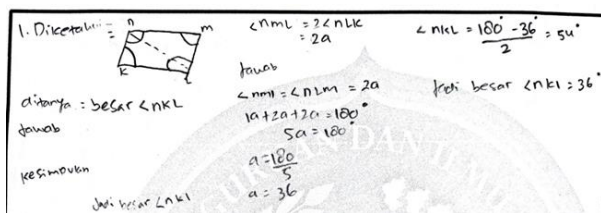 1. Diketahui =
n m
k L
ditanya : besar <nkL
Jawab
kesimpulan
Jadi besar <nkl
<nmL = 2<nLk
= 2a
Jawab
<nml = <nLm = 2a
1a + 2a + 2a = 180°
5a = 180°
a = 180
5
a = 36
<nkL = 180° - 36° = 54°
2
Jadi besar <nkl = 36°